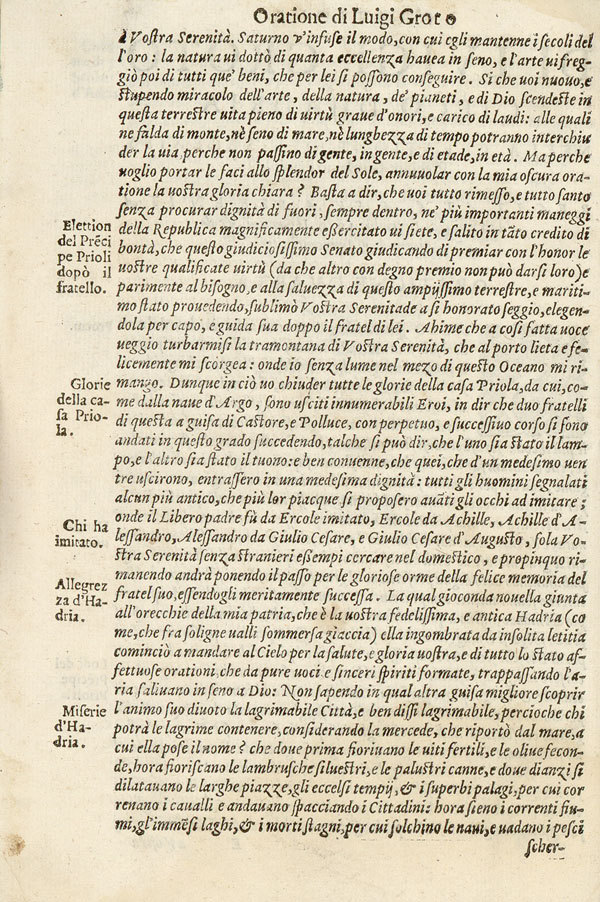 Oratione di Luigi Groto
à Vostra Serenità. Saturno v'infuse il modo, con cui egli mantenne i secoli del
l'oro: la natura ui dottò di quanta eccellenza hauea in seno, e l'arte ui freg-
giò poi di tutti que' beni, che per lei si possono conseguire. Si che uoi nuouo, e
stupendo miracolo dell'arte, della natura, de' pianeti, e di Dio scendeste in
questa terrestre uita pieno di uirtù graue d'onori, e carico di laudi: alle quali
ne falda di monte, nè seno di mare, nè lunghezza di tempo potranno interchiu
der la uia perche non passino di gente, in gente, e di etade, in età. Ma perche
uoglio portar le faci allo splendor del Sole, annuuolar con la mia oscura ora-
tione la uostra gloria chiara? Basta a dir, che uoi tutto rimesso, e tutto santo
senza procurar dignità di fuori, sempre dentro, ne' più importanti maneggi
della Republica magnificamente essercitato ui siete, e salito in tãto credito di
bontà, che questo giudiciosissimo Senato giudicando di premiar con l'honor le
uostre qualificate uirtù (da che altro con degno premio non può darsi loro) e
parimente al bisogno, e alla saluezza di questo ampijssimo terrestre, e mariti-
mo stato prouedendo, sublimò Vostra Serenitade a si honorato seggio, elegen-
dola per capo, e guida sua doppo il fratel di lei. Ahime che a cosi fatta uoce
ueggio turbarmisi la tramontana di Vostra Serenità, che al porto lieta e fe-
licemente mi scorgea: onde io senza lume nel mezo di questo Oceano mi ri-
mango. Dunque in ciò uo chiuder tutte le glorie della casa Priola, da cui, co-
me dalla naue d'Argo, sono usciti innumerabili Eroi, in dir che duo fratelli
di questa a guisa di Castore, e Polluce, con perpetuo, e successiuo corso si sono
andati in questo grado succedendo, talche si può dir, che l'uno sia stato il lam-
po, e l'altro sia stato il tuono: e ben conuenne, che quei, che d'un medesimo uen
tre uscirono, entrassero in una medesima dignità: tutti gli huomini segnalati
alcun più antico, che più lor piacque si proposero auãti gli occhi ad imitare;
onde il Libero padre fù da Ercole imitato, Ercole da Achille, Achille d'A-
lessandro, Alessandro da Giulio Cesare, e Giulio Cesare d'Augusto, sola Vo-
stra Serenità senza stranieri essempi cercare nel domestico, e propinquo ri-
manendo andrà ponendo il passo per le gloriose orme della felice memoria del
fratel suo, essendogli meritamente successa. La qual gioconda nouella giunta
all'orecchie della mia patria, che è la uostra fedelissima, e antica Hadria (co
me, che fra soligne ualli sommersa giaccia) ella ingombrata da insolita letitia
cominciò a mandare al Cielo per la salute, e gloria uostra, e di tutto lo stato af-
fettuose orationi, che da pure uoci e sinceri spiriti formate, trappassando l'a-
ria saliuano in seno a Dio: Non sapendo in qual altra guisa migliore scoprir
l'animo suo diuoto la lagrimabile Città, e ben dissi lagrimabile, percioche chi
potrà le lagrime contenere, considerando la mercede, che riportò dal mare, a
cui ella pose il nome? che doue prima fioriuano le uiti fertili, e le oliue fecon-
de, hora fioriscano le lambrusche siluestri, e le palustri canne, e doue dianzi si
dilatauano le larghe piazze, gli eccelsi tempij, & i superbi palagi, per cui cor
reuano i caualli e andauano spacciando i Cittadini: hora sieno i correnti fiu-
mi, gl'immẽsi laghi, & i morti stagni, per cui solchino le naui, e uadano i pesci
scher-
Elettion
del Prẽci
pe Prioli
dopò il
fratello.
Glorie
della ca-
sa Prio-
la.
Chi ha
imitato.
Allegrez
za d'Ha-
dria.
Miserie
d'Ha-
dria.